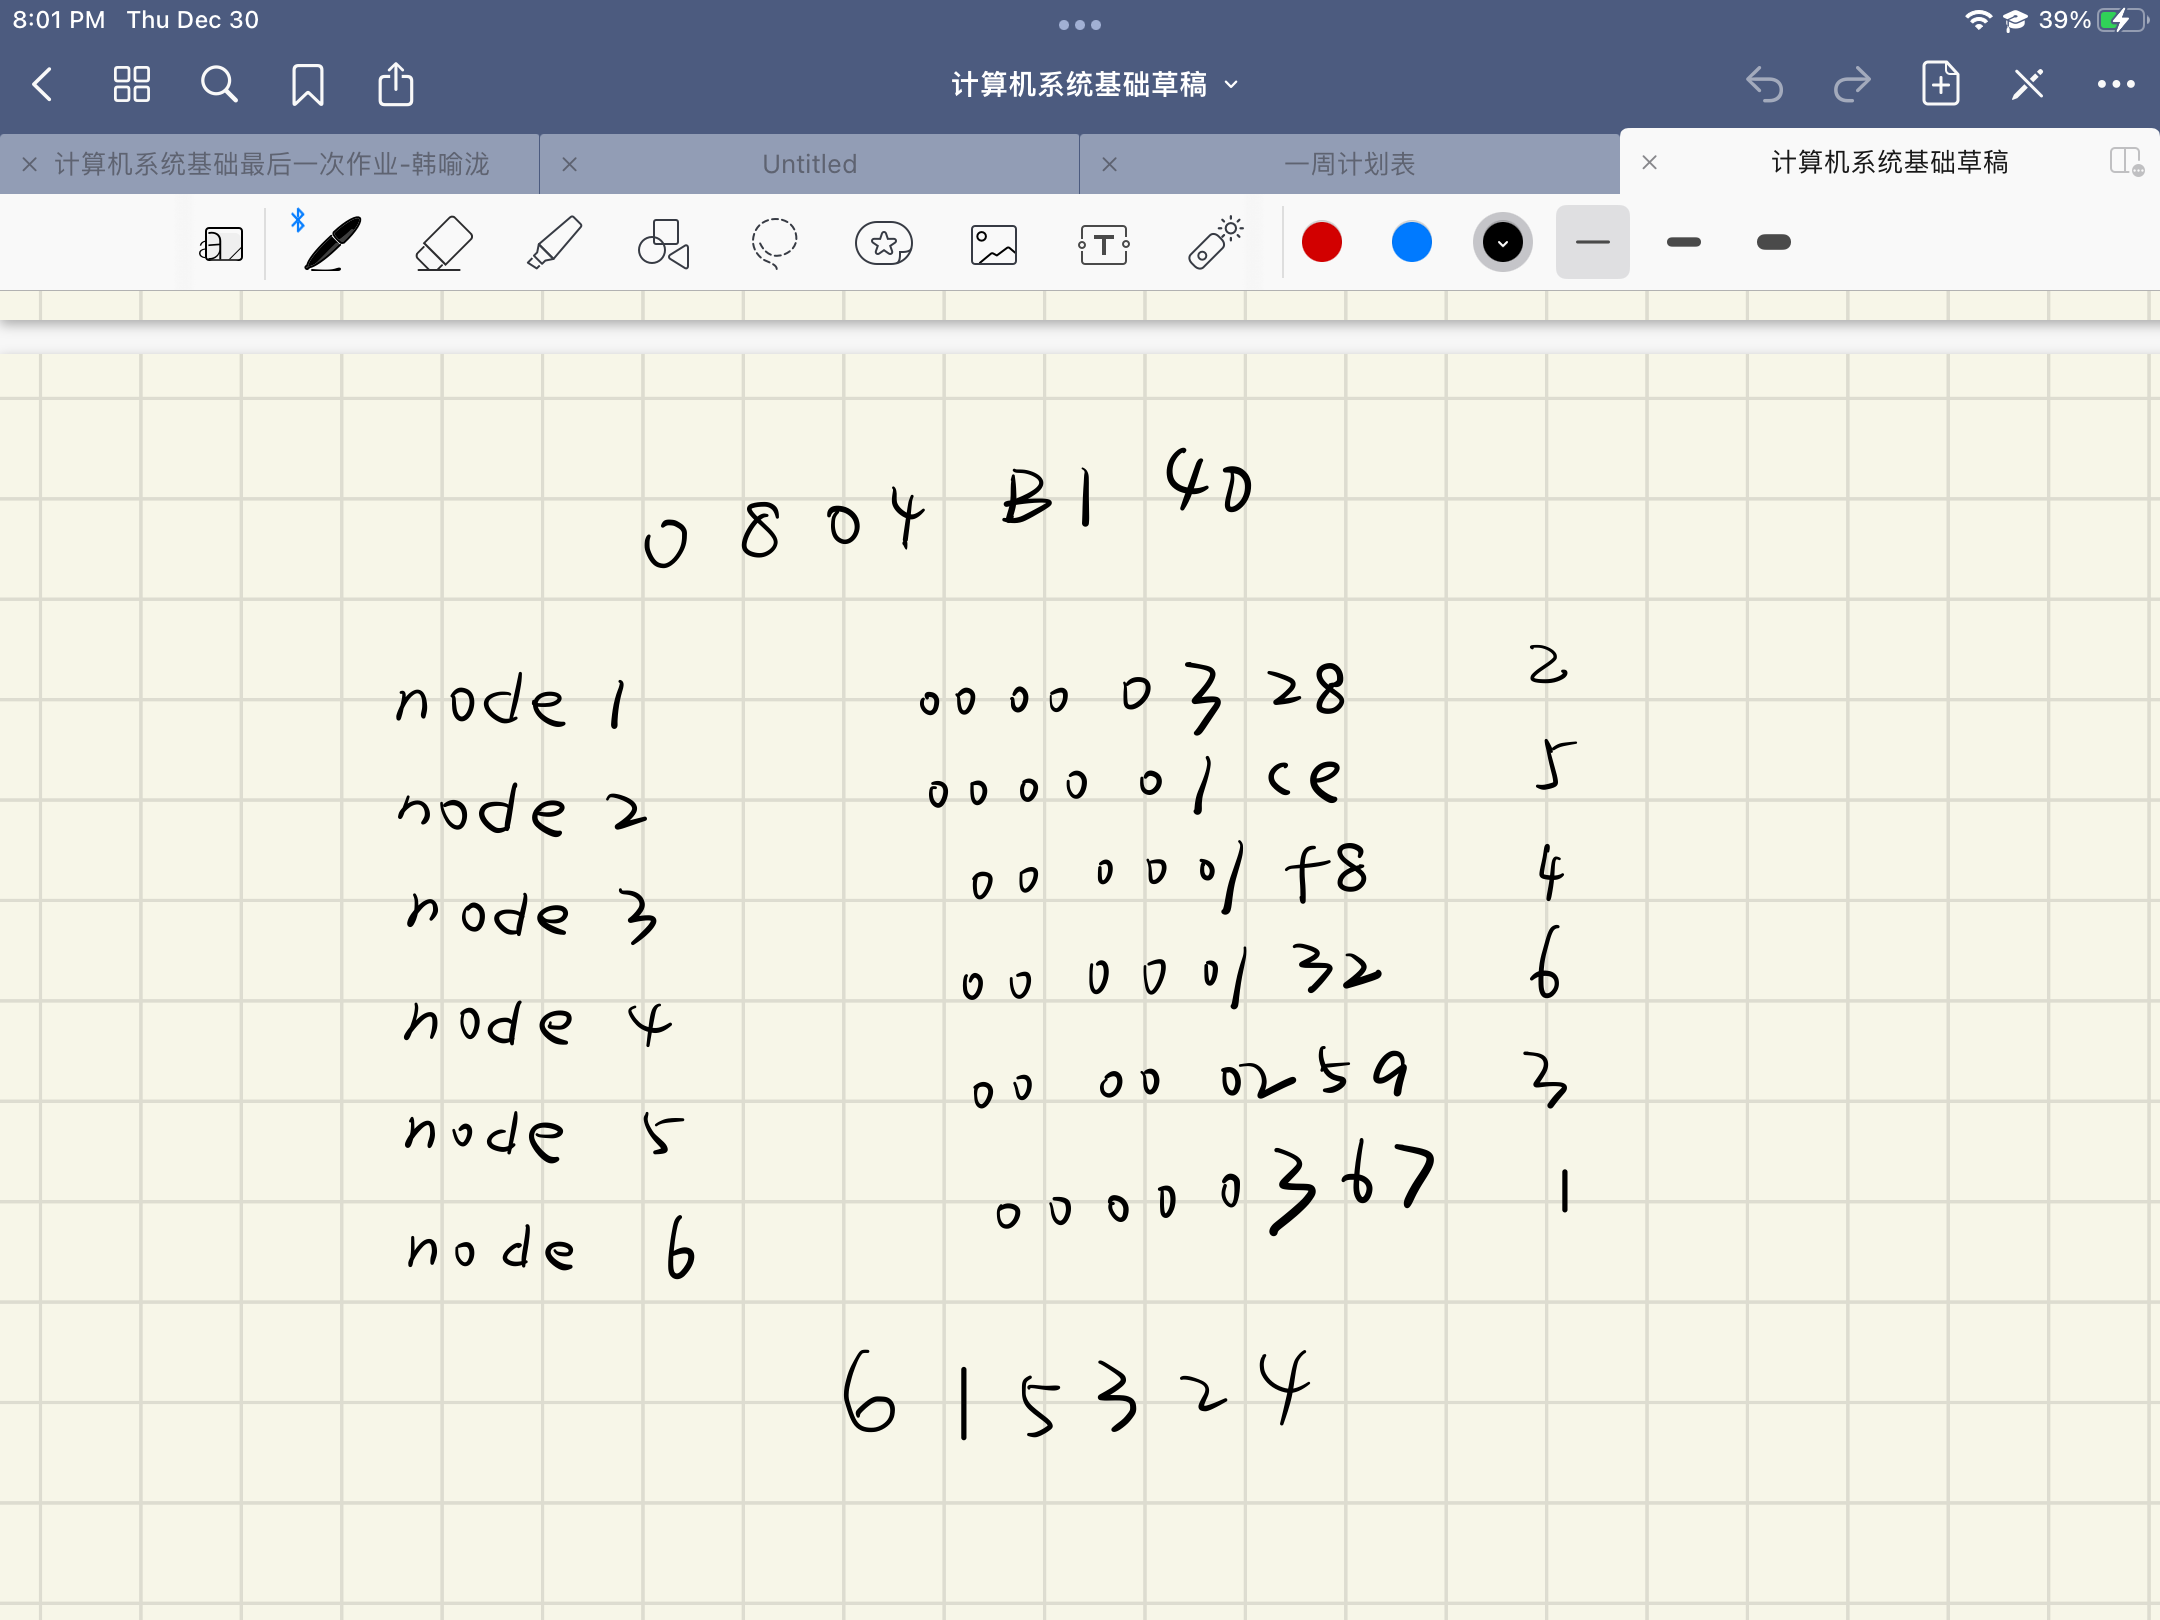 8:01 PM Thu Dec 30 39%
计算机系统基础草稿
计算机系统基础最后一次作业-韩喻泷 Untitled 一周计划表 计算机系统基础草稿
0 8 0 4 B1 40
node 1 00 00 03 28 2
node 2 00 00 01 ce 5
node 3 00 00 01 f8 4
node 4 00 00 01 32 6
node 5 00 00 02 59 3
node 6 00 00 03 67 1
6 1 5 3 2 4